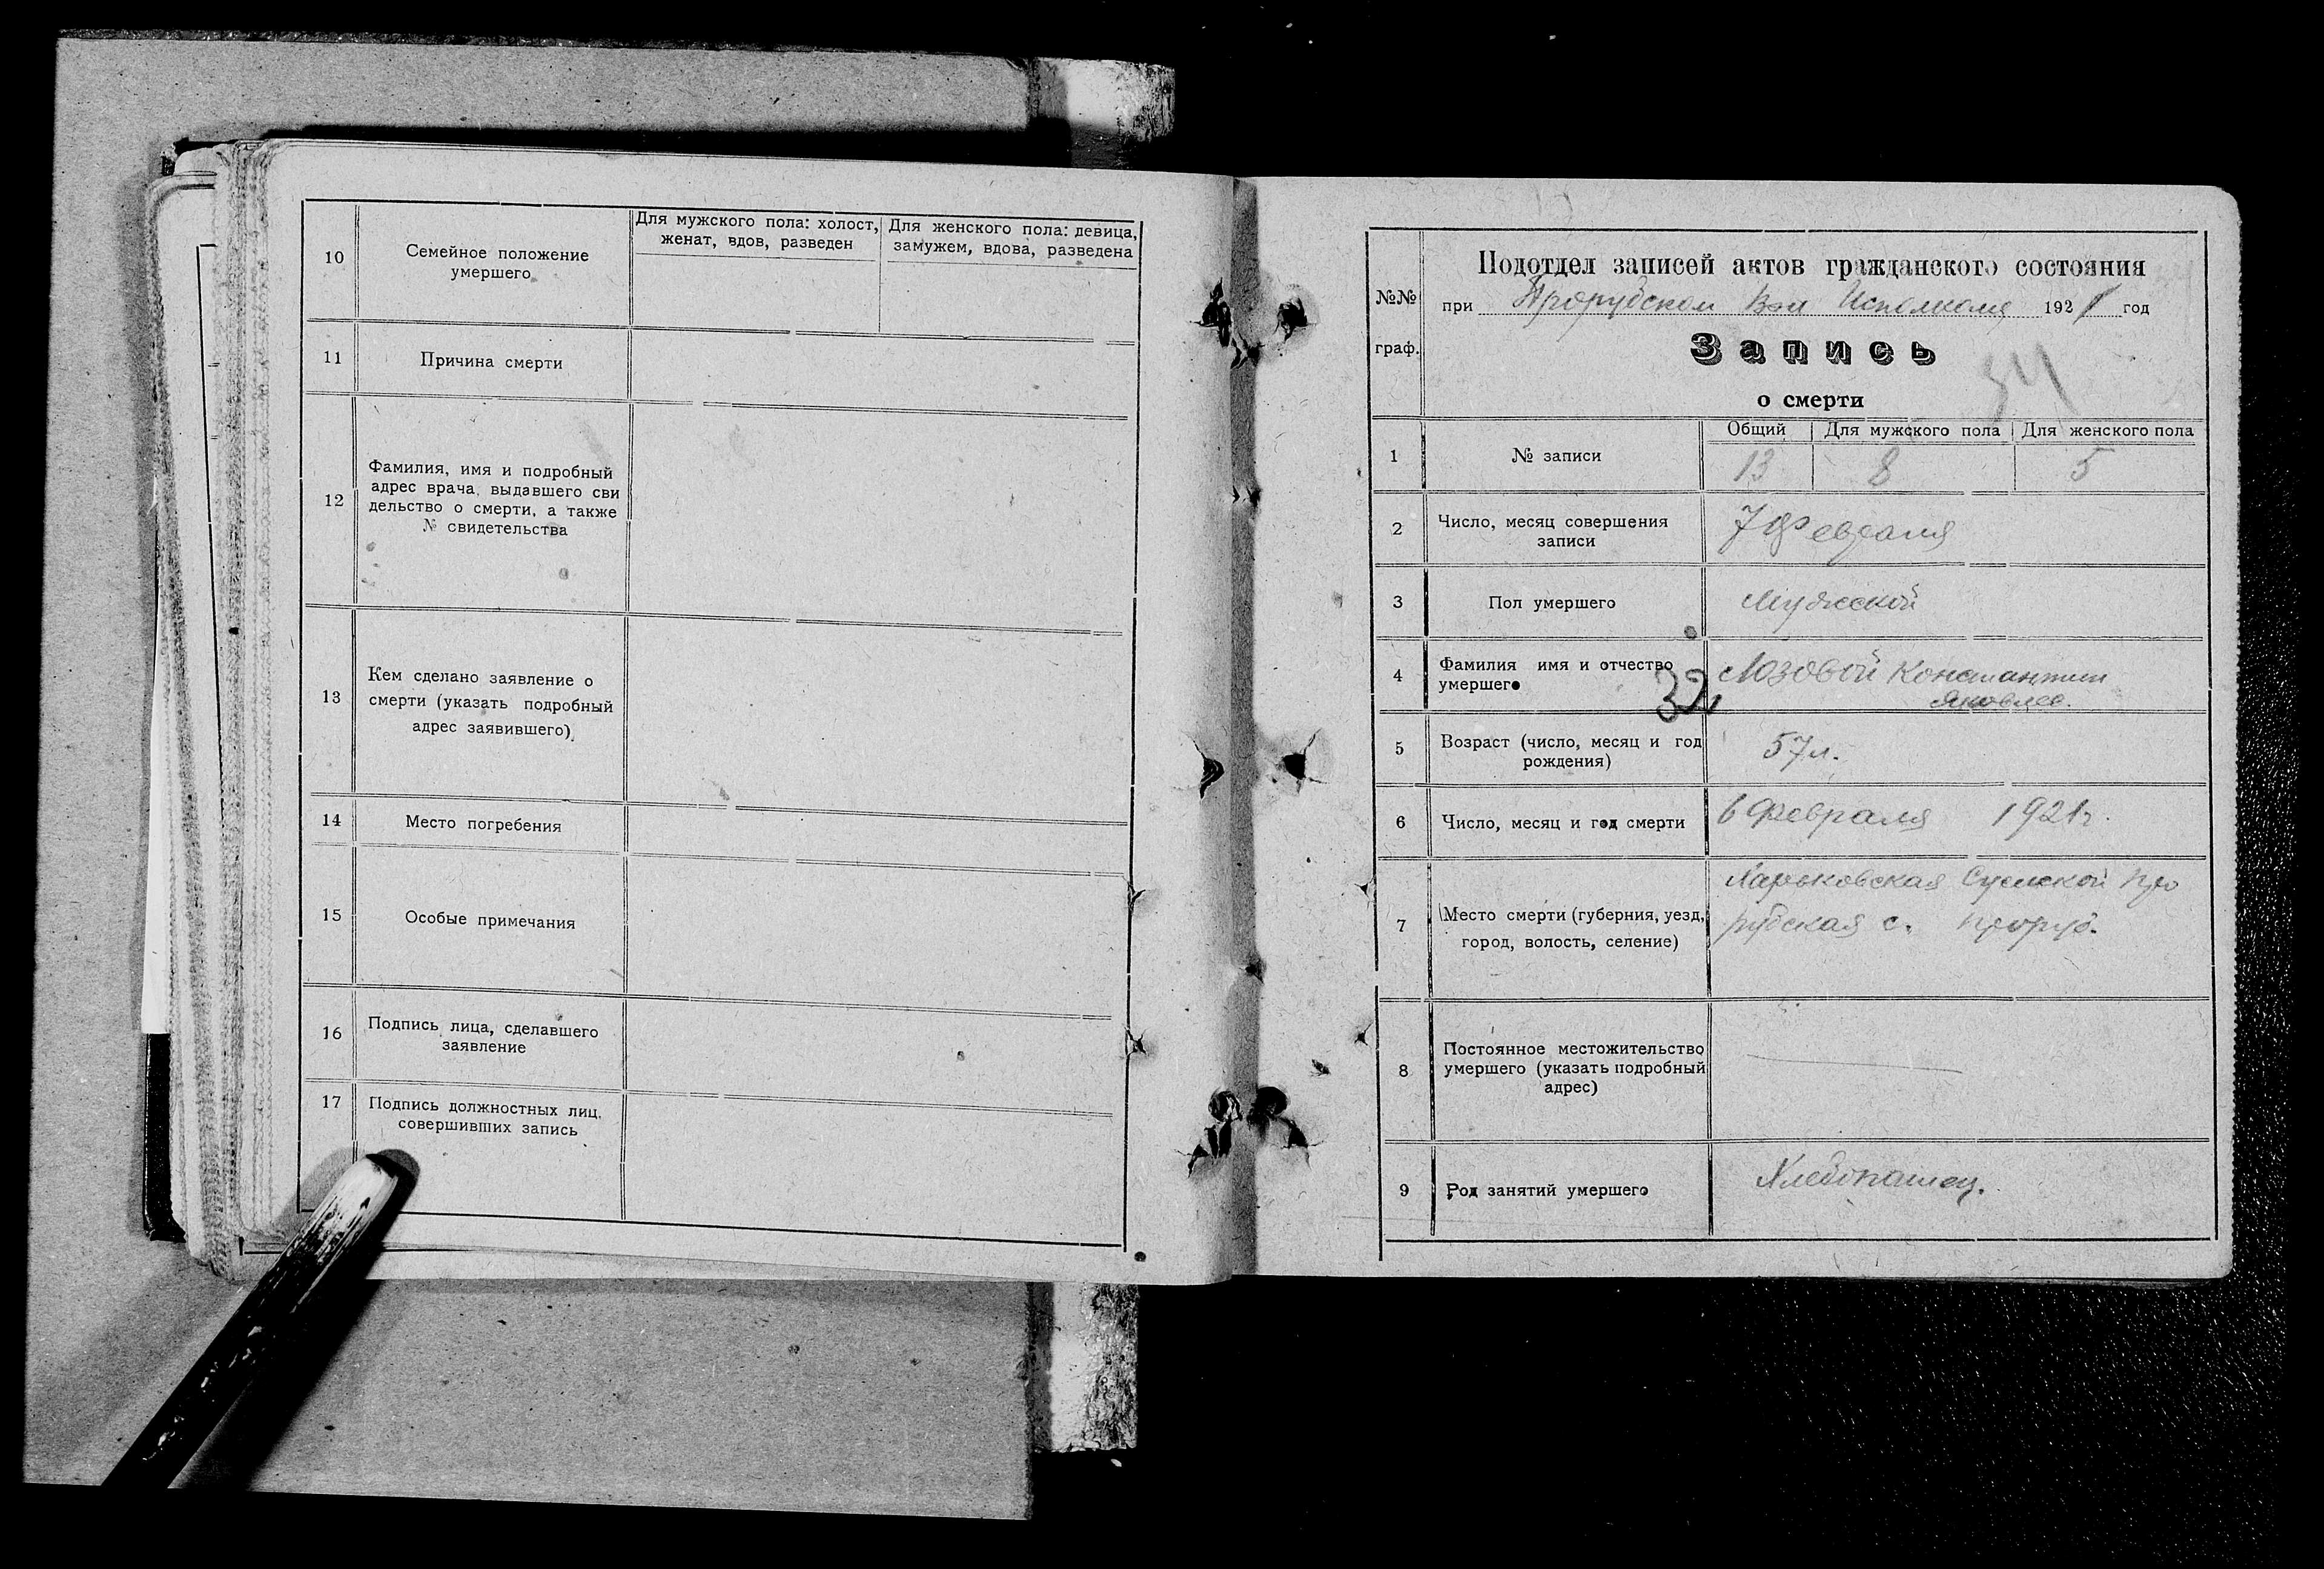 10
Семейное положение
умершего
Для мужского пола: холост,
женат, вдов, разведен
Для женского пола: девица,
замужем, вдова, разведена
11
Причина смерти
12
Фамилия, имя и подробный
адрес врача, выдавшего сви
дельство о смерти, а также
№ свидетельства
13
Кем сделано заявление о
смерти (указать подробный
адрес заявившего)
14
Место погребения
15
Особые примечания
16
Подпись лица, сделавшего
заявление
17
Подпись должностных лиц,
совершивших запись
№№
граф.
Подотдел записей актов гражданского состояния
при Прорубском Вол Исполкоме 1921 год
Запись
34
о смерти
1
№ записи
Общий
Для мужского пола
Для женского пола
13
8
5
2
Число, месяц совершения
записи
7 Февраля
3
Пол умершего
Мужской
4
Фамилия имя и отчество
умершего
32
Лозовой Константин
Яковлев.
5
Возраст (число, месяц и год
рождения)
57 л.
6
Число, месяц и год смерти
6 Февраля 1921 г.
7
Место смерти (губерния, уезд,
город, волость, селение)
Харьковская Сумской Про
рубская с. Проруб.
8
Постоянное местожительство
умершего (указать подробный
адрес)
9
Род занятий умершего
Хлебопашец.